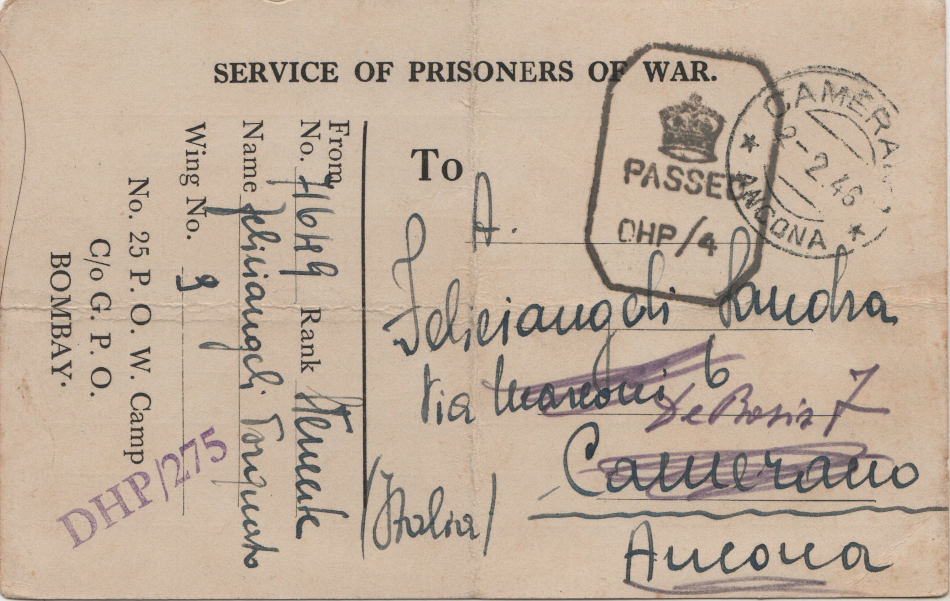 SERVICE OF PRISONERS OF WAR.
PASSED
DHP/4
CAMERANO
2-2.46
ANCONA
To
A.
Feliciangeli Sandra
Via Marconi 6
De Bosis 7
Camerano
Ancona
(Italia)
From
No. 71649 Rank S.Tenente
Name Feliciangeli Torquato
Wing No. 9
No. 25 P. O. W. Camp
C/o G. P. O.
BOMBAY.
DHP/275